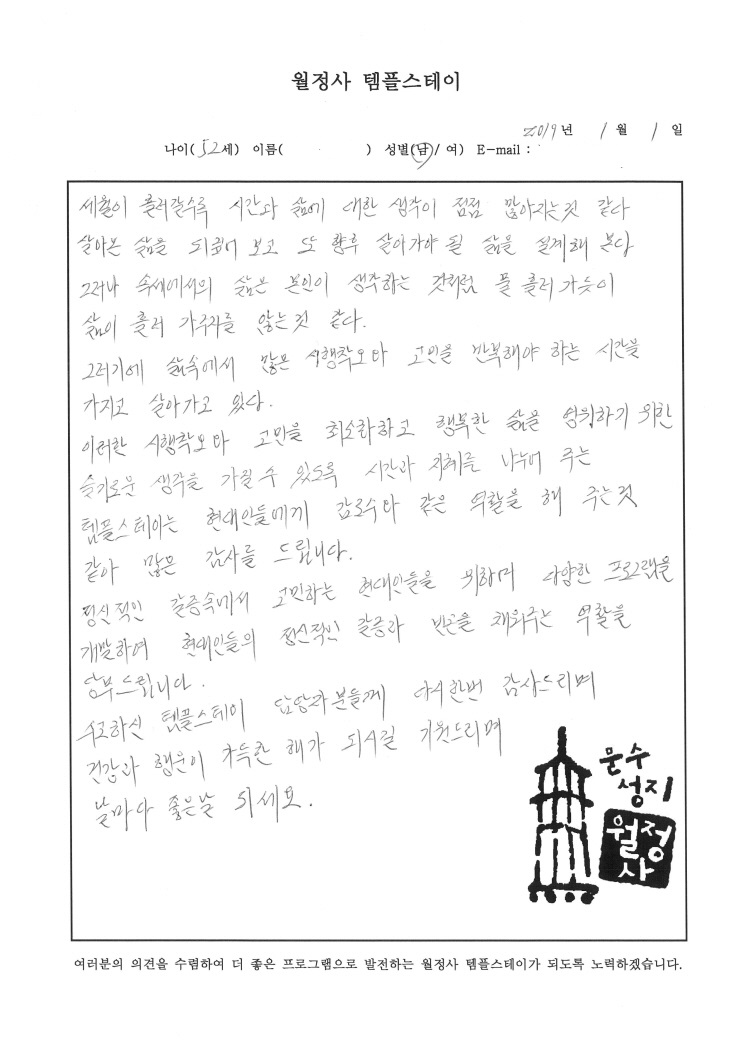 월정사 템플스테이
2019년 1월 1일
나이(52세) 이름( ) 성별(남/여) E-mail :
세월이 흘러갈수록 시간과 삶에 대한 생각이 점점 많아지는것 같다
살아온 삶을 되짚어 보고 또 향후 살아가야 될 삶을 설계해 본다
그러나 속세에서의 삶은 본인이 생각하는 것처럼 물 흘러가듯이
삶이 흘러 가주지를 않는것 같다.
그러기에 삶속에서 많은 시행착오와 고민을 반복해야 하는 시간을
가지고 살아가고 있다.
이러한 시행착오와 고민을 최소화하고 행복한 삶을 영위하기 위한
슬기로운 생각을 가질수 있도록 시간과 지혜를 나누어 주는
템플스테이는 현대인들에게 감로수와 같은 역할을 해 주는것
같아 많은 감사를 드립니다.
정신적인 갈증속에서 고민하는 현대인들을 위하며 다양한 프로그램을
개발하여 현대인들의 정신적인 갈증과 빈곤을 채워주는 역할을
당부드립니다.
수고하신 템플스테이 담당자분들께 다시한번 감사드리며
건강과 행운이 가득한 해가 되시길 기원드리며
날마다 좋은날 되세요.
문수
성지
월정
사
여러분의 의견을 수렴하여 더 좋은 프로그램으로 발전하는 월정사 템플스테이가 되도록 노력하겠습니다.